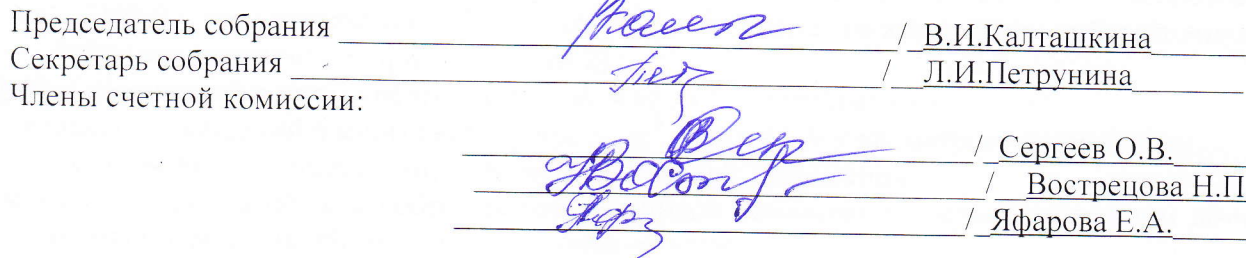 Председатель собрания / В.И.Калташкина
Секретарь собрания / Л.И.Петрунина
Члены счетной комиссии:
/ Сергеев О.В.
/ Вострецова Н.П
/ Яфарова Е.А.